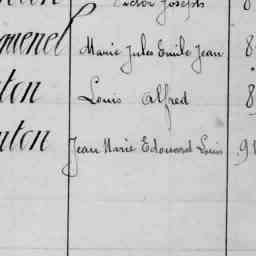 Victor Joseph
quenel Marie Jules Emile Jean 8
ton Louis Alfred 8
nton Jean Marie Edouard Louis 91